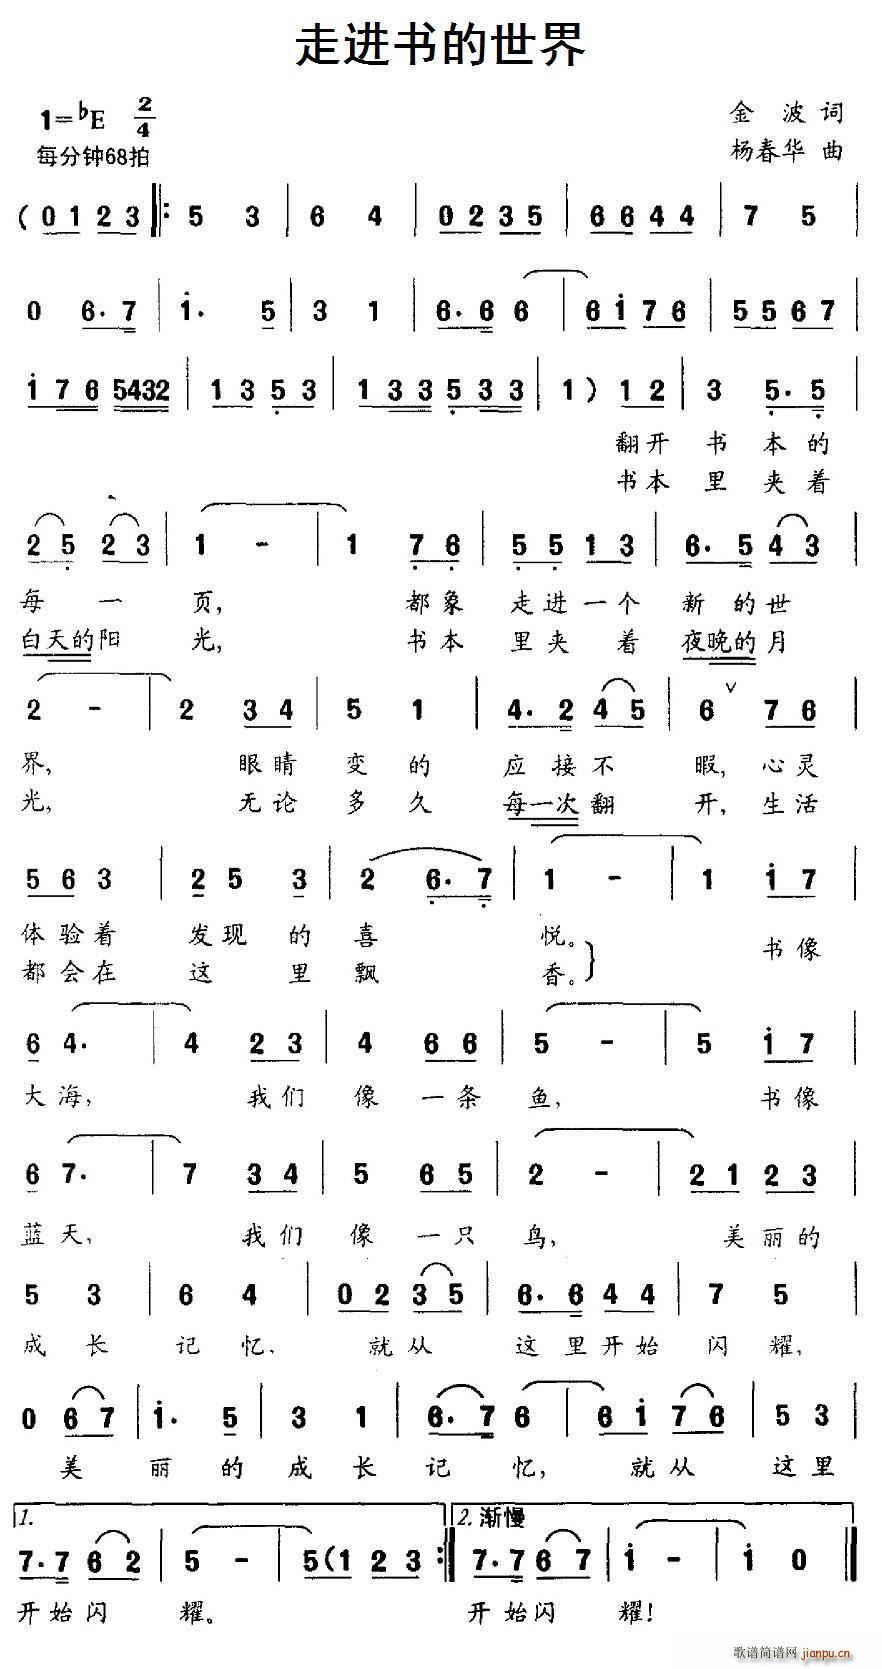 走进书的世界
1=♭E 2/4
金 波 词
每分钟68拍
杨春华 曲
(0 1 2 3 ‖: 5 3 | 6 4 | 0 2 3 5 | 6 6 4 4 | 7 5 |
0 6· 7 | i· 5 | 3 1 | 6· 6 6 | 6 i 7 6 | 5 5 6 7 |
i 7 6 5432 | 1 3 5 3 | 1 3 3 5 3 3 | 1 ) 1 2 | 3 5· 5 |
翻开 书 本的
书本 里 夹着
2 5 2 3 | 1 - | 1 7 6 | 5 5 1 3 | 6· 5 4 3 |
每 一 页, 都象 走进一个 新的世
白天的阳 光, 书本 里夹 着 夜晚的月
2 - | 2 3 4 | 5 1 | 4· 2 4 5 | 6 ∨ 7 6 |
界, 眼睛 变 的 应接不 暇, 心灵
光, 无论 多 久 每一次翻 开, 生活
5 6 3 | 2 5 3 | 2 6· 7 | 1 - | 1 i 7 |
体验着 发现 的 喜 悦。 书像
都会在 这 里 飘 香。
6 4· | 4 2 3 | 4 6 6 | 5 - | 5 i 7 |
大海, 我们 像 一条 鱼, 书像
6 7· | 7 3 4 | 5 6 5 | 2 - | 2 1 2 3 |
蓝天, 我们 像 一只 鸟, 美丽的
5 3 | 6 4 | 0 2 3 5 | 6· 6 4 4 | 7 5 |
成 长 记 忆, 就从 这里开始 闪 耀,
0 6 7 | i· 5 | 3 1 | 6· 7 6 | 6 i 7 6 | 5 3
美 丽 的 成 长 记 忆, 就从 这里
1. 2. 渐慢
7· 7 6 2 | 5 - | 5 (1 2 3 :‖ 7· 7 6 7 | i - | i 0 ‖
开始闪 耀。 开始闪 耀!
歌谱简谱网 jianpu.cn